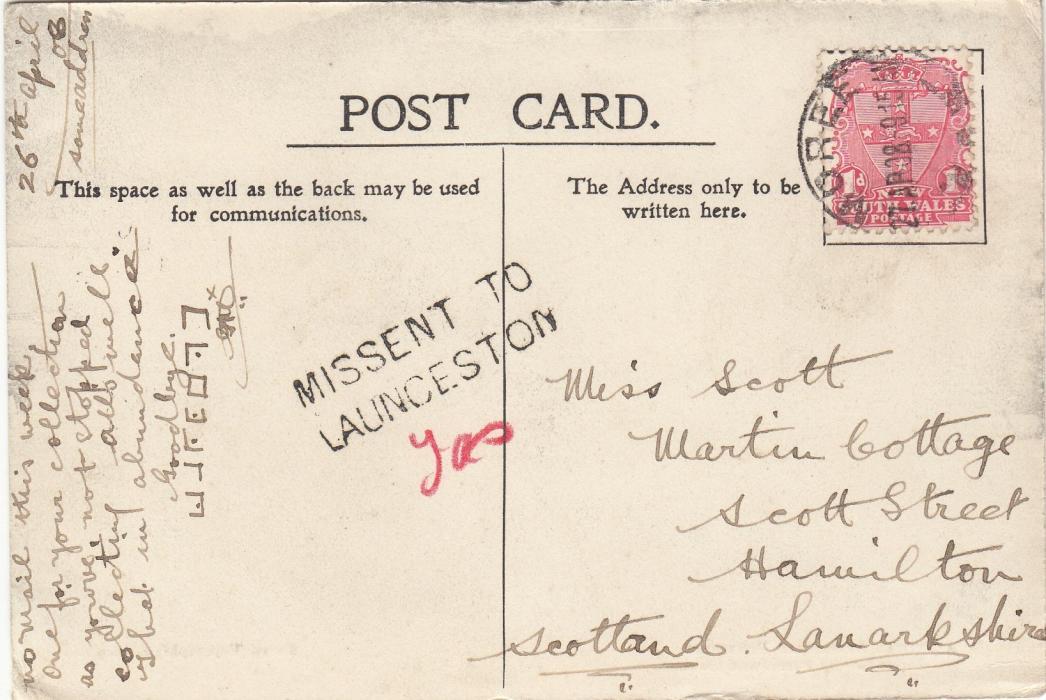 POST CARD.
This space as well as the back may be used
for communications.
The Address only to be
written here.
1d
WALES
POSTAGE
MISSENT TO
LAUNCESTON
Yes
Miss Scott
Martin Cottage
Scott Street
Hamilton
Scotland. Lanarkshire
26th April
08
same address
no mail this week
one for your collection
as you've not stopped
collecting all well
what in abundance
Goodbye.